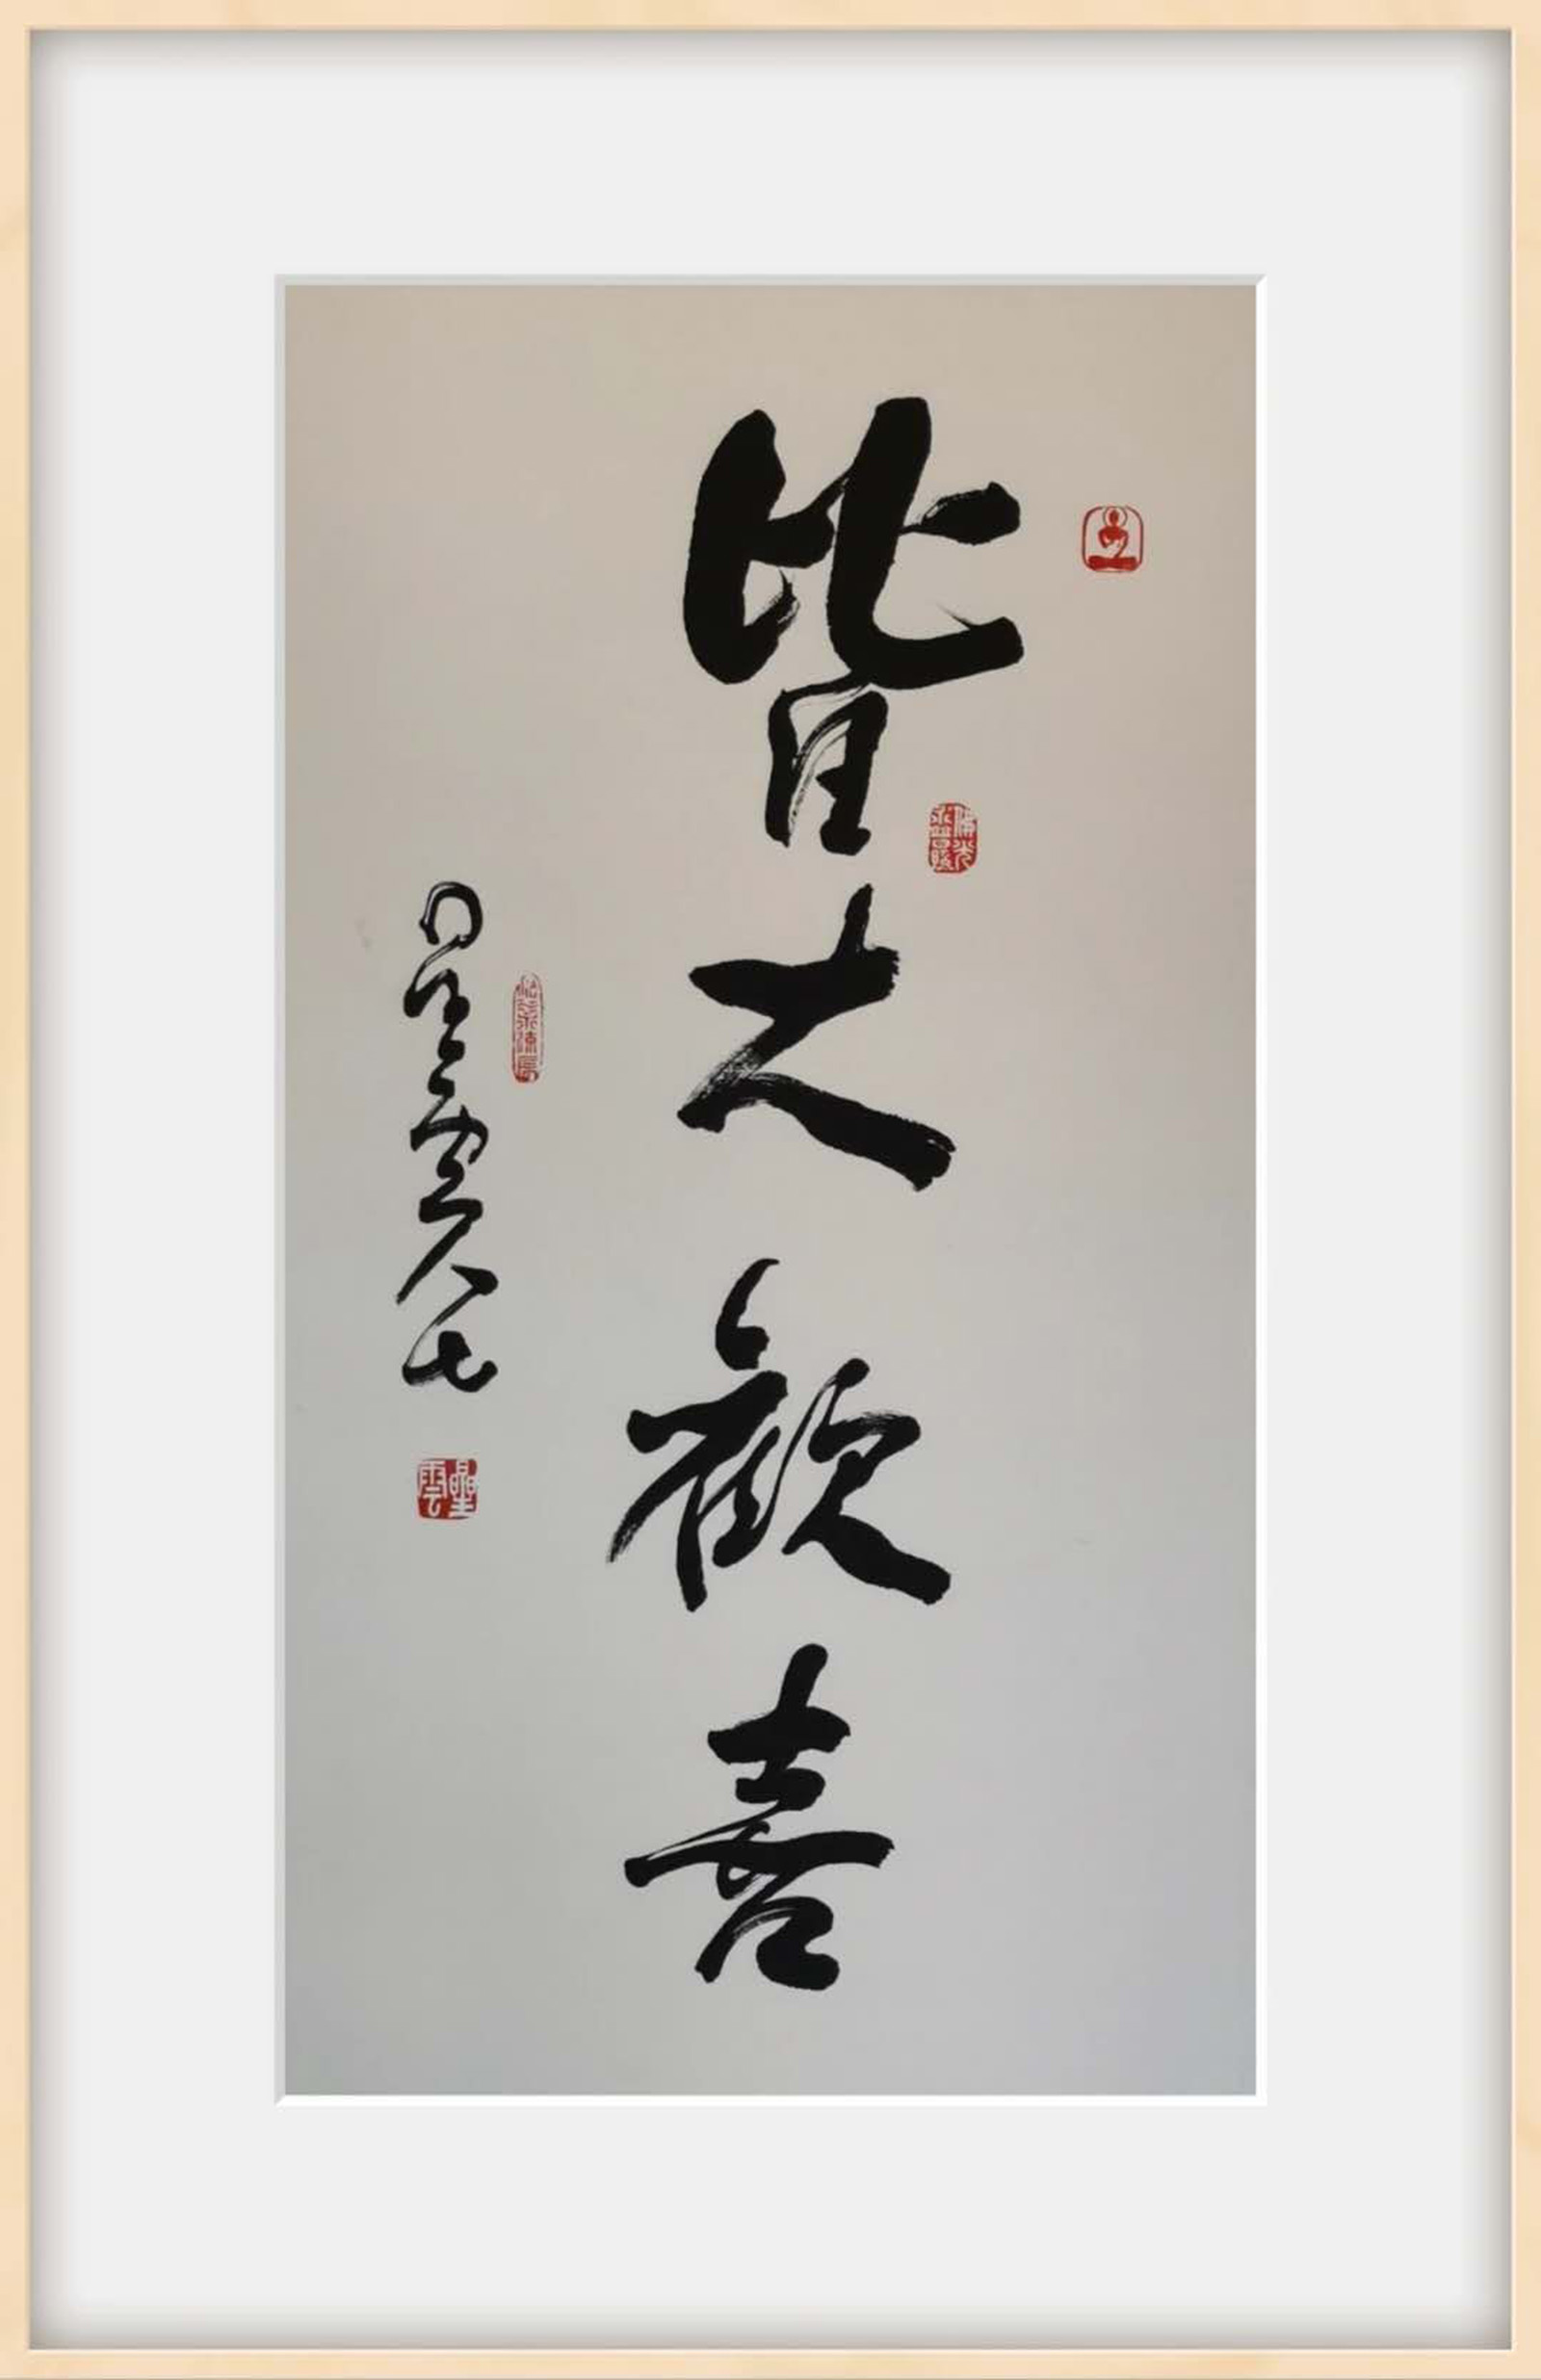 皆大歡喜
星雲八七
星雲